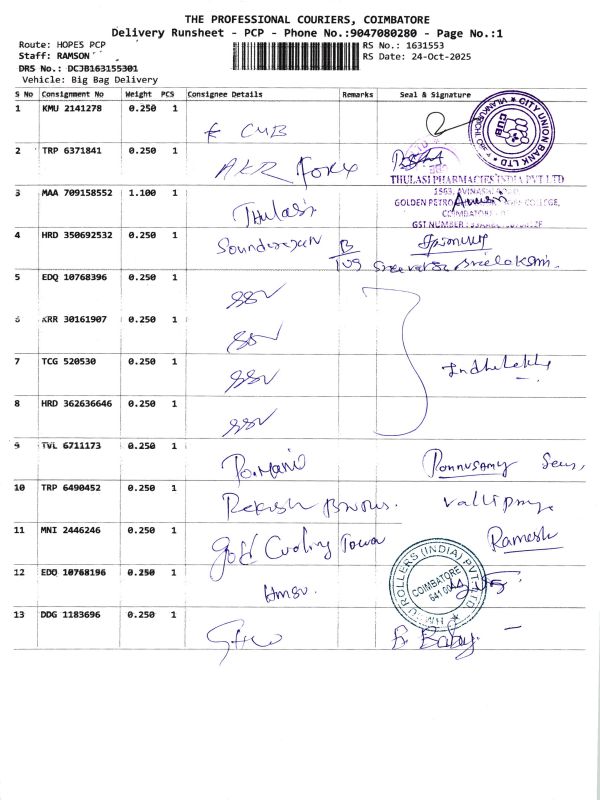 THE PROFESSIONAL COURIERS, COIMBATORE
Delivery Runsheet - PCP - Phone No.:9047080280 - Page No.:1
Route: HOPES PCP
RS No.: 1631553
Staff: RAMSON
RS Date: 24-Oct-2025
DRS No.: DCJB163155301
Vehicle: Big Bag Delivery
S No Consignment No Weight PCS Consignee Details Remarks Seal & Signature
1 KMU 2141278 0.250 1 CUB
CITY UNION BANK LTD
CUB
2 TRP 6371841 0.250 1 AKR Forex
THULASI PHARMACIES INDIA PVT LTD
3 MAA 709158552 1.100 1 Thulasi
1563, AVINASHI ROAD
GOLDEN PETRO COLLEGE,
COIMBATORE
GST NUMBER :
4 HRD 350692532 0.250 1 Soundarajan B
109 Sreevatsa Sreelakshmi
5 EDQ 10768396 0.250 1 SSV
6 KRR 30161907 0.250 1 SSV
7 TCG 520530 0.250 1 SSV Indhulekha
8 HRD 362636646 0.250 1 SSV
9 TVL 6711173 0.250 1 Po.Mani Ponnusamy Sens,
10 TRP 6490452 0.250 1
11 MNI 2446246 0.250 1 Gold Cooling Towa Ramesh
12 EDQ 10768196 0.250 1
U ROLLERS (INDIA) PVT LTD
COIMBATORE
13 DDG 1183696 0.250 1 Babu